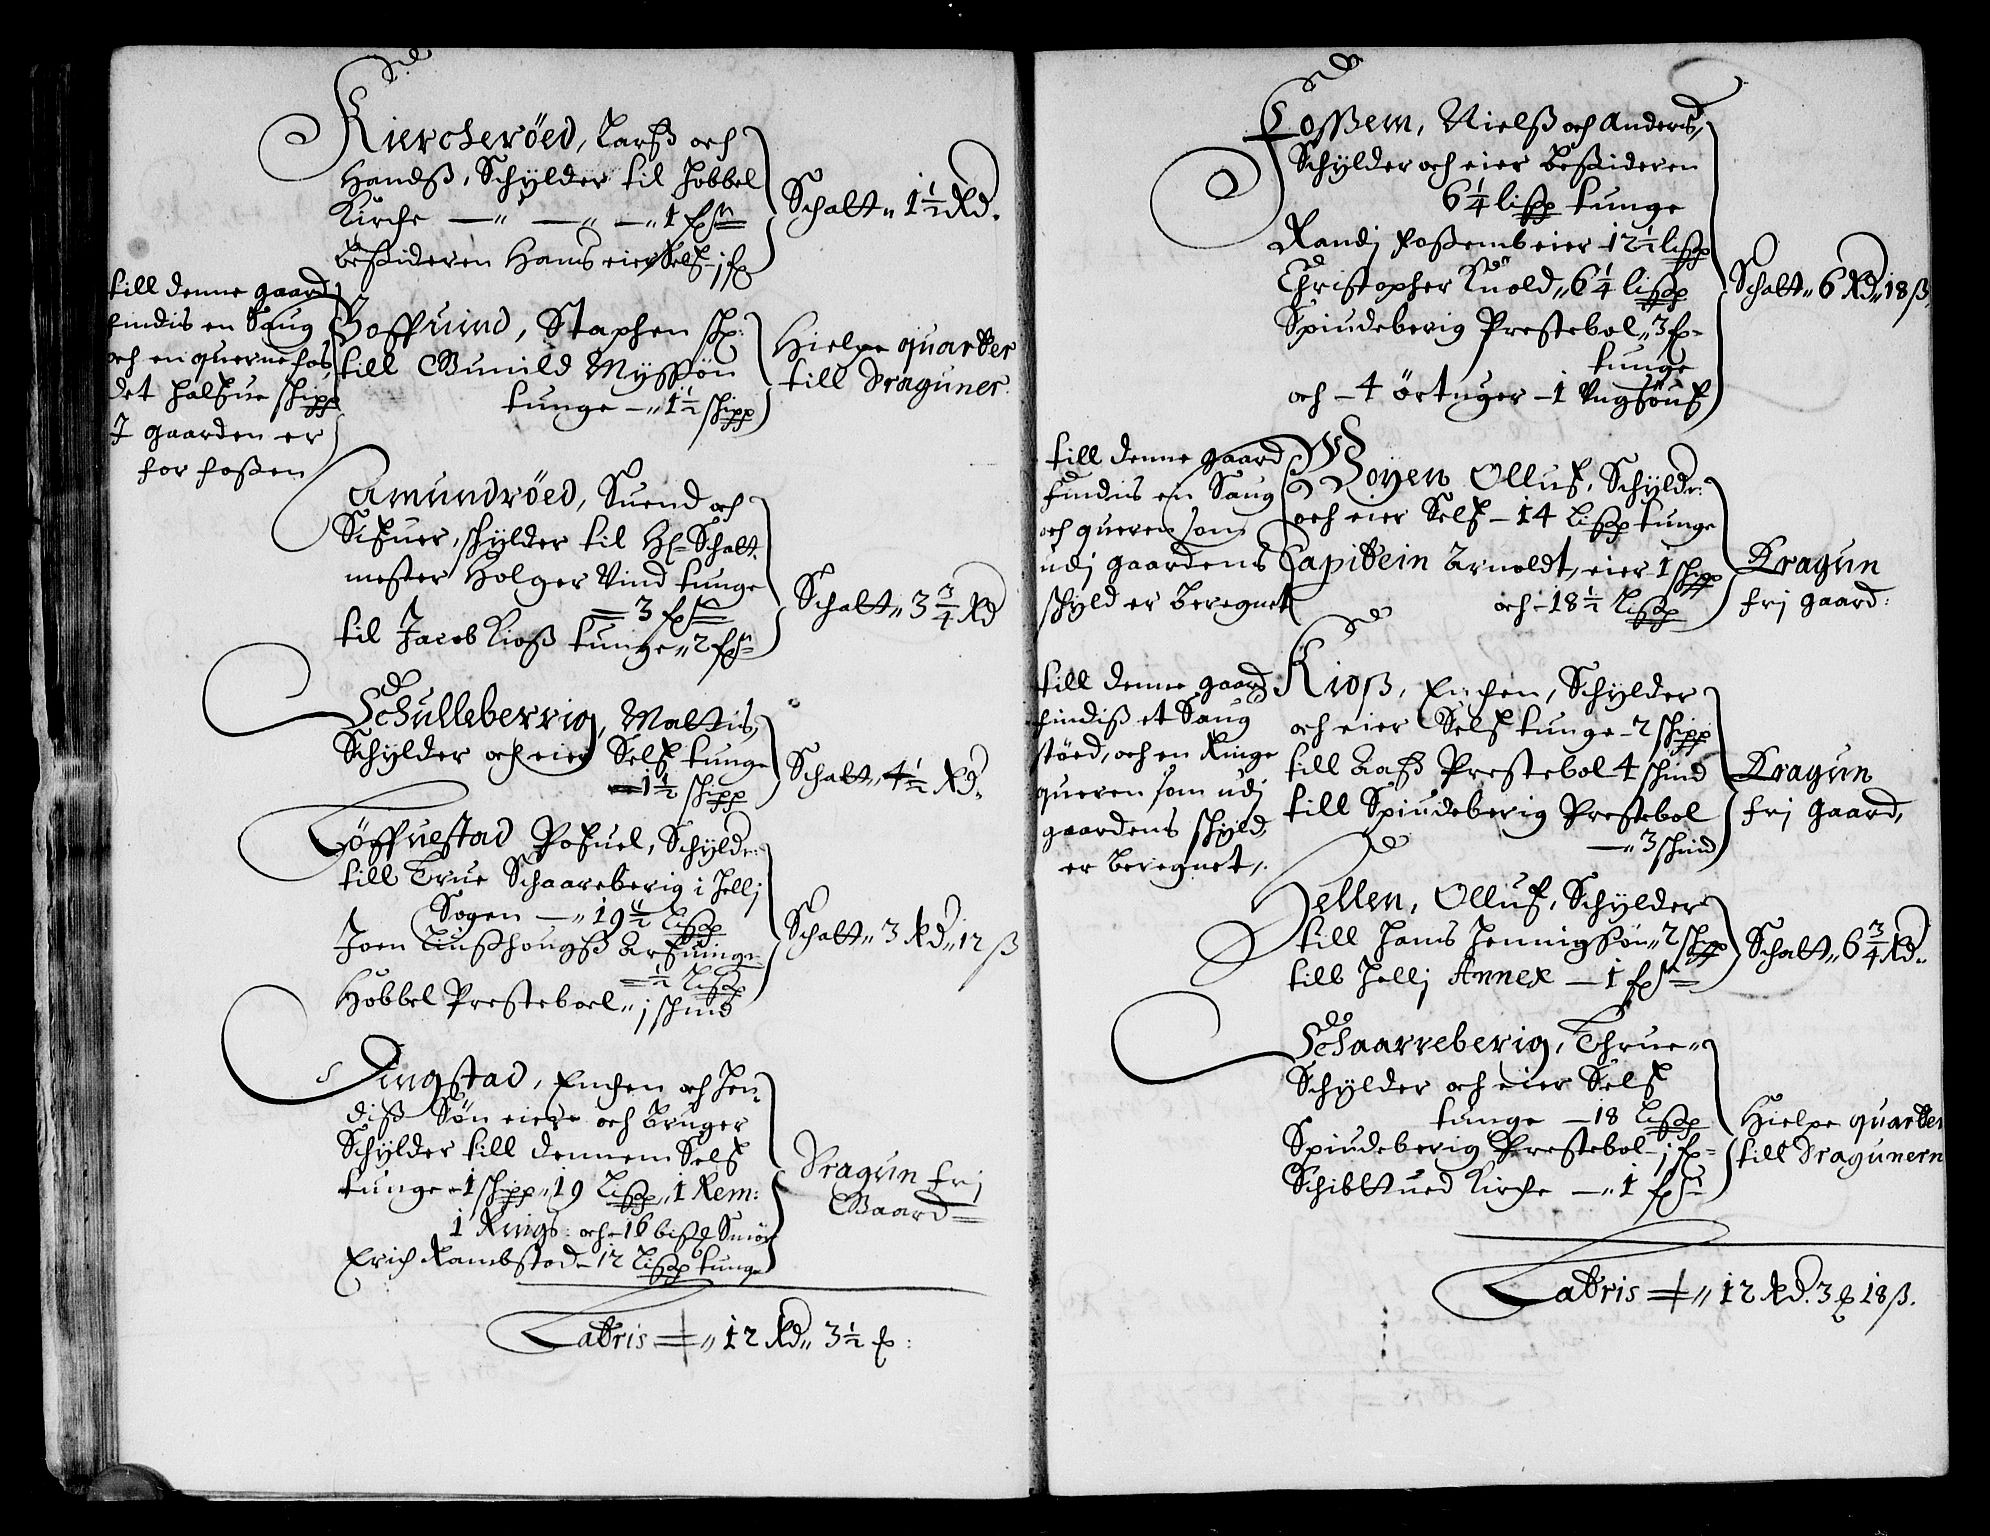 Kiercherøed, Larß och
Handß, Schylder til Hobbel
Kirche — 1 frs
beßideren Hans eier Self - j f
Schatt 1 1/2 Rd.
till denne gaard
findis en Saug
och en querne fos
det halfue schipp
J gaarden er
for foßen
Boffuind, Staphen sch:
till Gunild Myssøn
tunge — 1 1/2 schipp
Hielpe quarter
till Draguner
Amundrøed, Suend och
Sifuer, schylder til H: Schatt
mester Holger Vind tunge
= 3 frs
til Jacob Kioß tunge 2 frs
Schatt 3 3/4 Rd
Schulleberrig, Mattis,
Schylder och eier Self tunge
1 1/2 schipp
Schatt, 4 1/2 Rd.
Tøffuestad Pofuel, Schylder
till True Schaareberig i Hellj
Sogen — 19 1/2 Lispp
Joen Lußhougß Arfuinge
1/2 Lispp
Hobbel Presteboel j schind
Schatt 3 Rd 12 ß
Dingstad, Erichen och hen-
diß Søn eier och bruger
Schylder till dennem Self
tunge 1 schipp 19 Lispp 1 Rem:
1 Rings: och 16 bißp Smør
Erich Rambstad 12 Lispp tunge
Dragun frj
Gaard
Latris 12 Rd 3 1/2 f:
Foßem, Nielß och Anders,
Schylder och eier beßideren
6 1/4 lispp tunge
Randj Foßemb eier 12 1/2 lispp
Christopher Knold 6 1/4 lispp
Spiudeberig Prestebol 3 f
tunge
och 4 örtuger 1 Vngsöuf
Schatt 6 Rd 18 ß
till denne gaard
findis en Saug
och queren som
udj gaardens
schyld er beregnet
Woyen Olluf, Schylder
och eier Self 14 Lispp tunge
Capitein Arnoldt, eier 1 schipp
och 18 1/2 Lispp
Dragun
frj gaard:
till denne gaard
findiß et Saug
støed, och en Ringe
queren som udj
gaardens schyld,
er beregnet,
Kioß, Erichen, Schylder
och eier Self tunge 2 schipp
till Aaß Prestebol 4 schind
till Spiudeberig Prestebol
3 schind
Dragun
frj gaard,
Hellen, Olluf, Schylder
till Hans Henningßøn 2 schipp
till Hellj Annex — 1 frs
Schatt 6 3/4 Rd
Schaarreberig, Thrue
Schylder och eier Self
tunge — 18 Lispp
Spiudeberig Prestebol j f
Schibttued Kirche — 1 frs
Hielpe quarter
till Dragunern
Latris 12 Rd. 3 f 18 ß.